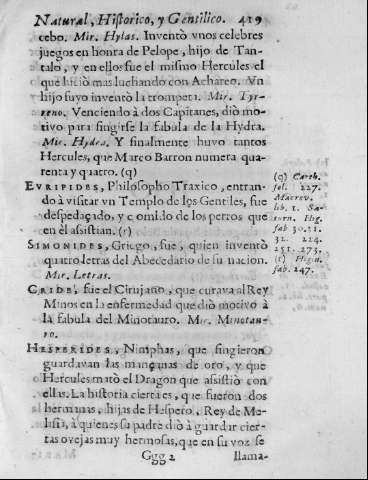 Natural, Historico, y Gentilico. 419
cebo. Mir. Hylas. Inventò vnos celebres
juegos en honra de Pelope, hijo de Tan-
talo, y en ellos fue el mismo Hercules el
que luciò mas luchando con Achareo. Vn
hijo suyo inventò la trompeta. Mir. Tyr-
reno. Venciendo à dos Capitanes, diò mo-
tivo para fingirse la fabula de la Hydra.
Mir. Hydra. Y finalmente huvo tantos
Hercules, que Marco Barron numera qua-
renta y quatro. (q)
EVRIPIDES, Philosopho Traxico, entran-
do à visitar vn Templo de los Gentiles, fue
despedaçado, y comido de los perros que
en èl assistian. (r)
SIMONIDES, Griego, fue, quien inventò
quatro letras del Abecedario de su nacion.
Mir. Letras.
CRIDE, fue el Cirujano, que curava al Rey
Minos en la enfermedad que diò motivo à
la fabula del Minotauro. Mir. Minotau-
ro.
HESPERIDES, Nimphas, que fingieron
guardavan las mançanas de oro, y que
Hercules matò el Dragon que assistiò con
ellas. La historia cierta es, que fueron dos
hermanas, hijas de Hespero, Rey de Me-
lisia, à quienes su padre diò à guardar cier-
tas ovejas muy hermosas, que en su voz se
Ggg 2 llama-
(q) Carth.
fol. 227.
Macrov.
lib. 1. Sa-
turn. Hig.
fab 30.31.
32. 224.
251. 273.
(r) Higin.
fab. 247.